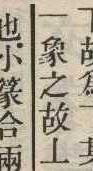 下故爲一其
一象之故上
也小篆合兩